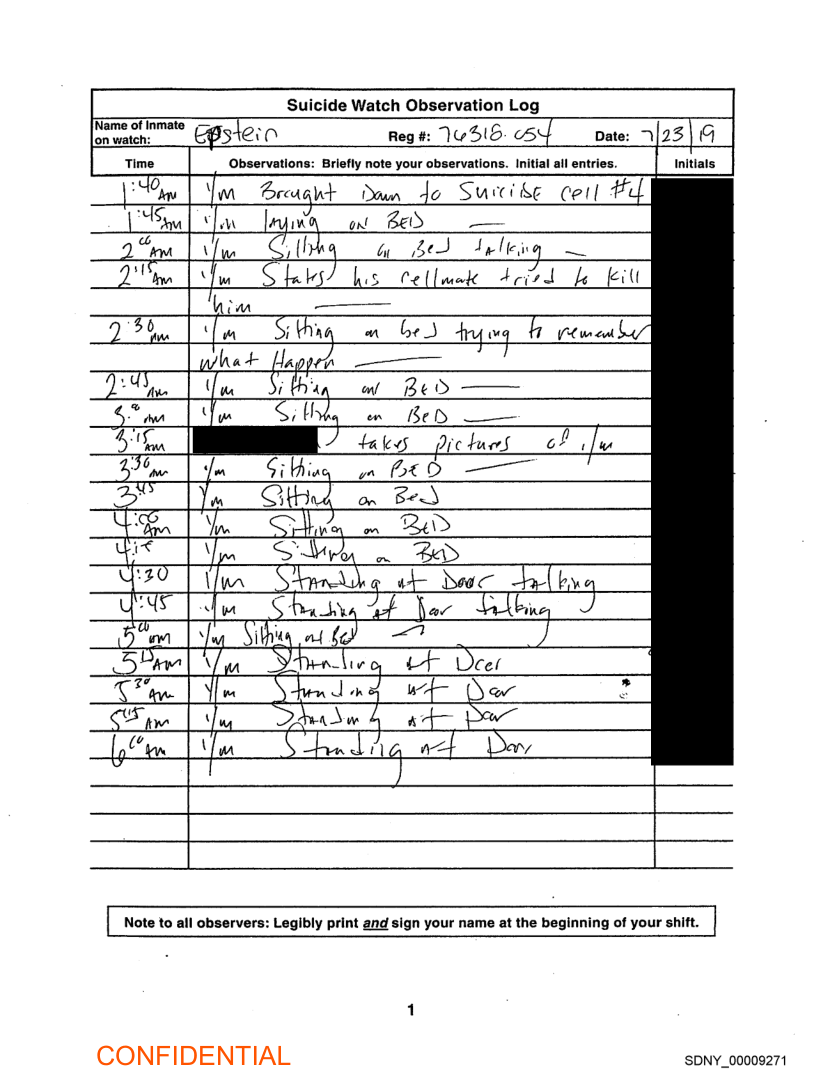 Suicide Watch Observation Log
Name of Inmate on watch: Epstein Reg #: 76318-054 Date: 7/23/19
Time Observations: Briefly note your observations. Initial all entries. Initials
1:40 AM I/m Brought Down to Suicide cell #4
1:45 AM I/m laying on BED —
2:00 AM I/m Sitting on Bed talking —
2:15 AM I/m States his cellmate tried to kill
him —
2:30 AM I/m Sitting on bed trying to remember
what Happen —
2:45 AM I/m Sitting on BED —
3:00 AM I/m Sitting on BED —
3:15 AM takes pictures of I/m
3:30 AM I/m Sitting on BED —
3:45 I/m Sitting on Bed
4:00 AM I/m Sitting on BED
4:15 I/m Sitting on BED
4:30 I/m Standing at Door talking
4:45 I/m Standing at Door talking
5:00 AM I/m Sitting on Bed
5:15 AM I/m Standing at Door
5:30 AM I/m Standing at Door
AM I/m Standing at Door
6:00 AM I/m Standing at Door
Note to all observers: Legibly print and sign your name at the beginning of your shift.
1
CONFIDENTIAL
SDNY_00009271